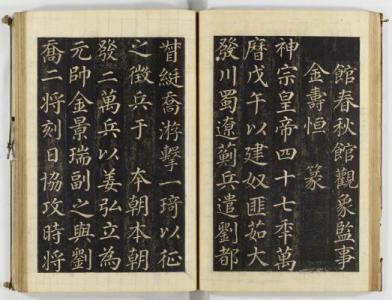 館春秋館觀象監事
金壽恒 篆
神宗皇帝四十七秊萬
曆戊午以建奴匪茹大
發川蜀遼薊兵遣劉都
督綎喬游擊一琦以征
之徵兵于 本朝本朝
發二萬兵以姜弘立為
元帥金景瑞副之與劉
喬二將刻日協攻時將